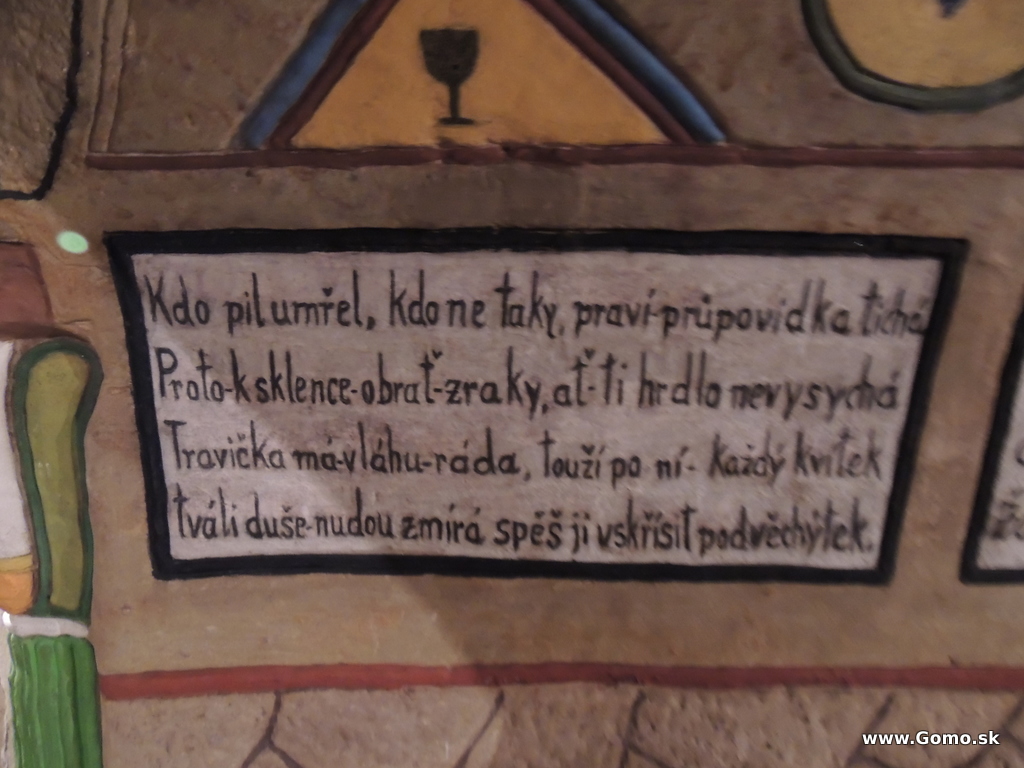 Kdo pil umřel, kdo ne taky, praví-průpovidka tichá
Proto-k sklence-obrať-zraky, ať-ti hrdlo nevysychá
Travička má-vláhu-ráda, touží po ní- každý kvítek
tváli duše-nudou zmírá spěš ji vskřísit pod věchýtek.
www.Gomo.sk